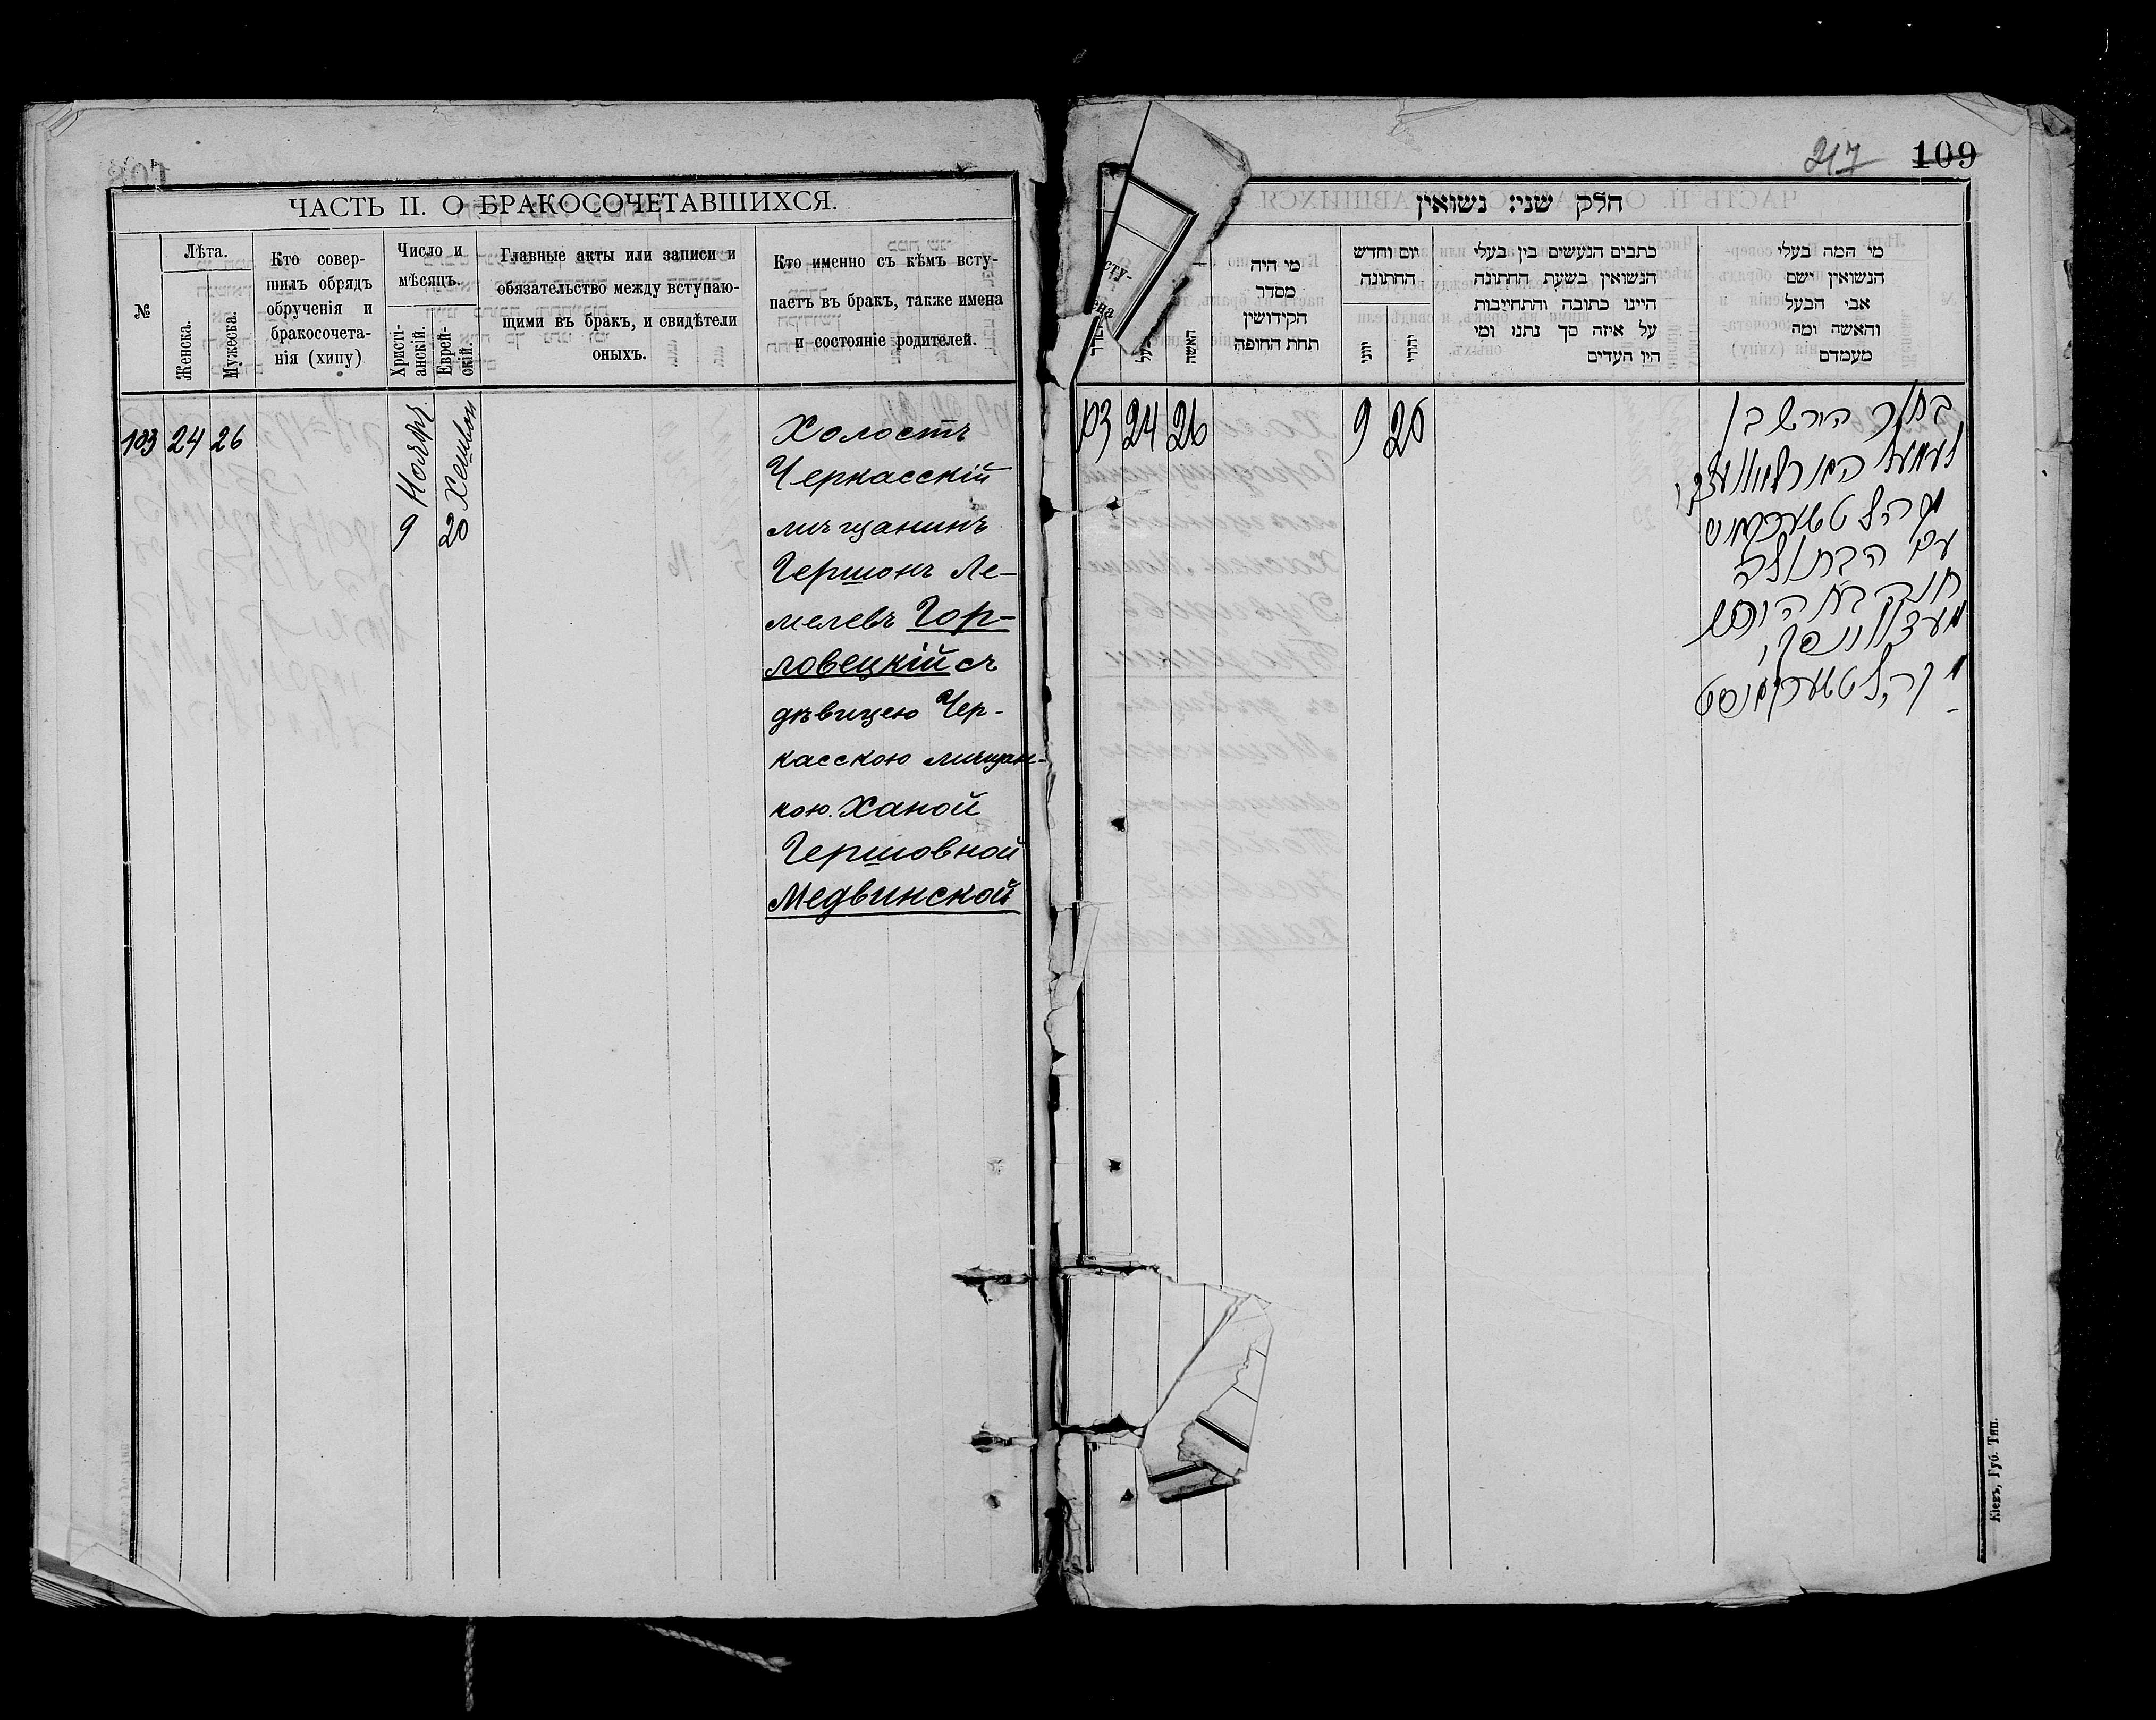 ЧАСТЬ II. О БРАКОСОЧЕТАВШИХСЯ.
№
Лѣта.
Женска.
Мужеска.
Кто совер-
шилъ обрядъ
обрученія и
бракосочета-
нія (хипу)
Число и
мѣсяцъ.
Христі-
анскій.
Еврей-
скій.
Главные акты или записи и
обязательство между вступаю-
щими въ бракъ, и свидѣтели
оныхъ.
Кто именно съ кѣмъ всту-
паетъ въ бракъ, также имена
и состояніе родителей.
103 24 26
9 Ноября
20 Хешвон
Холостъ
Черкасскій
мѣщанинъ
Гершонъ Ле-
мелевъ Гор-
ловецкій съ
дѣвицею Чер-
касскою мѣщан-
кою Ханой
Гершовной
Медвинской
217 109
חלק שני: נשואין
האשה
מי היה
מסדר
הקידושין
תחת החופה
יום וחדש
החתונה
יוני
יהודי
כתבים הנעשים בין בעלי
הנשואין בשעת החתונה
היינו כתובה והתחייבות
על איזה סך נתנו ומי
היו העדים
מי המה בעלי
הנשואין וישם
אבי הבעל
והאשה ומה
מעמדם
103 24 26
9 20
בחור הירש בן
עם הבתולה
חנה בת הירש
Кіевъ, Губ. Тип.